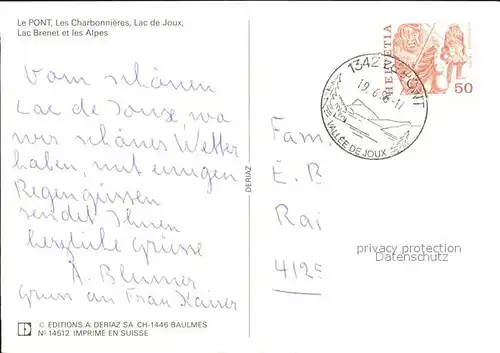 Le PONT, Les Charbonnières, Lac de Joux,
Lac Brenet et les Alpes
Vom schönen
Lac de Joux, wo
wir schönes Wetter
haben, mit einigen
Regengüssen
sendet Ihnen
herzliche Grüsse
A. Blumer
Gruss an Frau Kaiser
© EDITIONS A. DERIAZ SA CH-1446 BAULMES
Nº 14512 IMPRIME EN SUISSE
DERIAZ
1342 LE PONT
19.6.86-17
VALLÉE DE JOUX
HELVETIA
50
Fam.
E. B
Rai
4125
privacy protection
Datenschutz